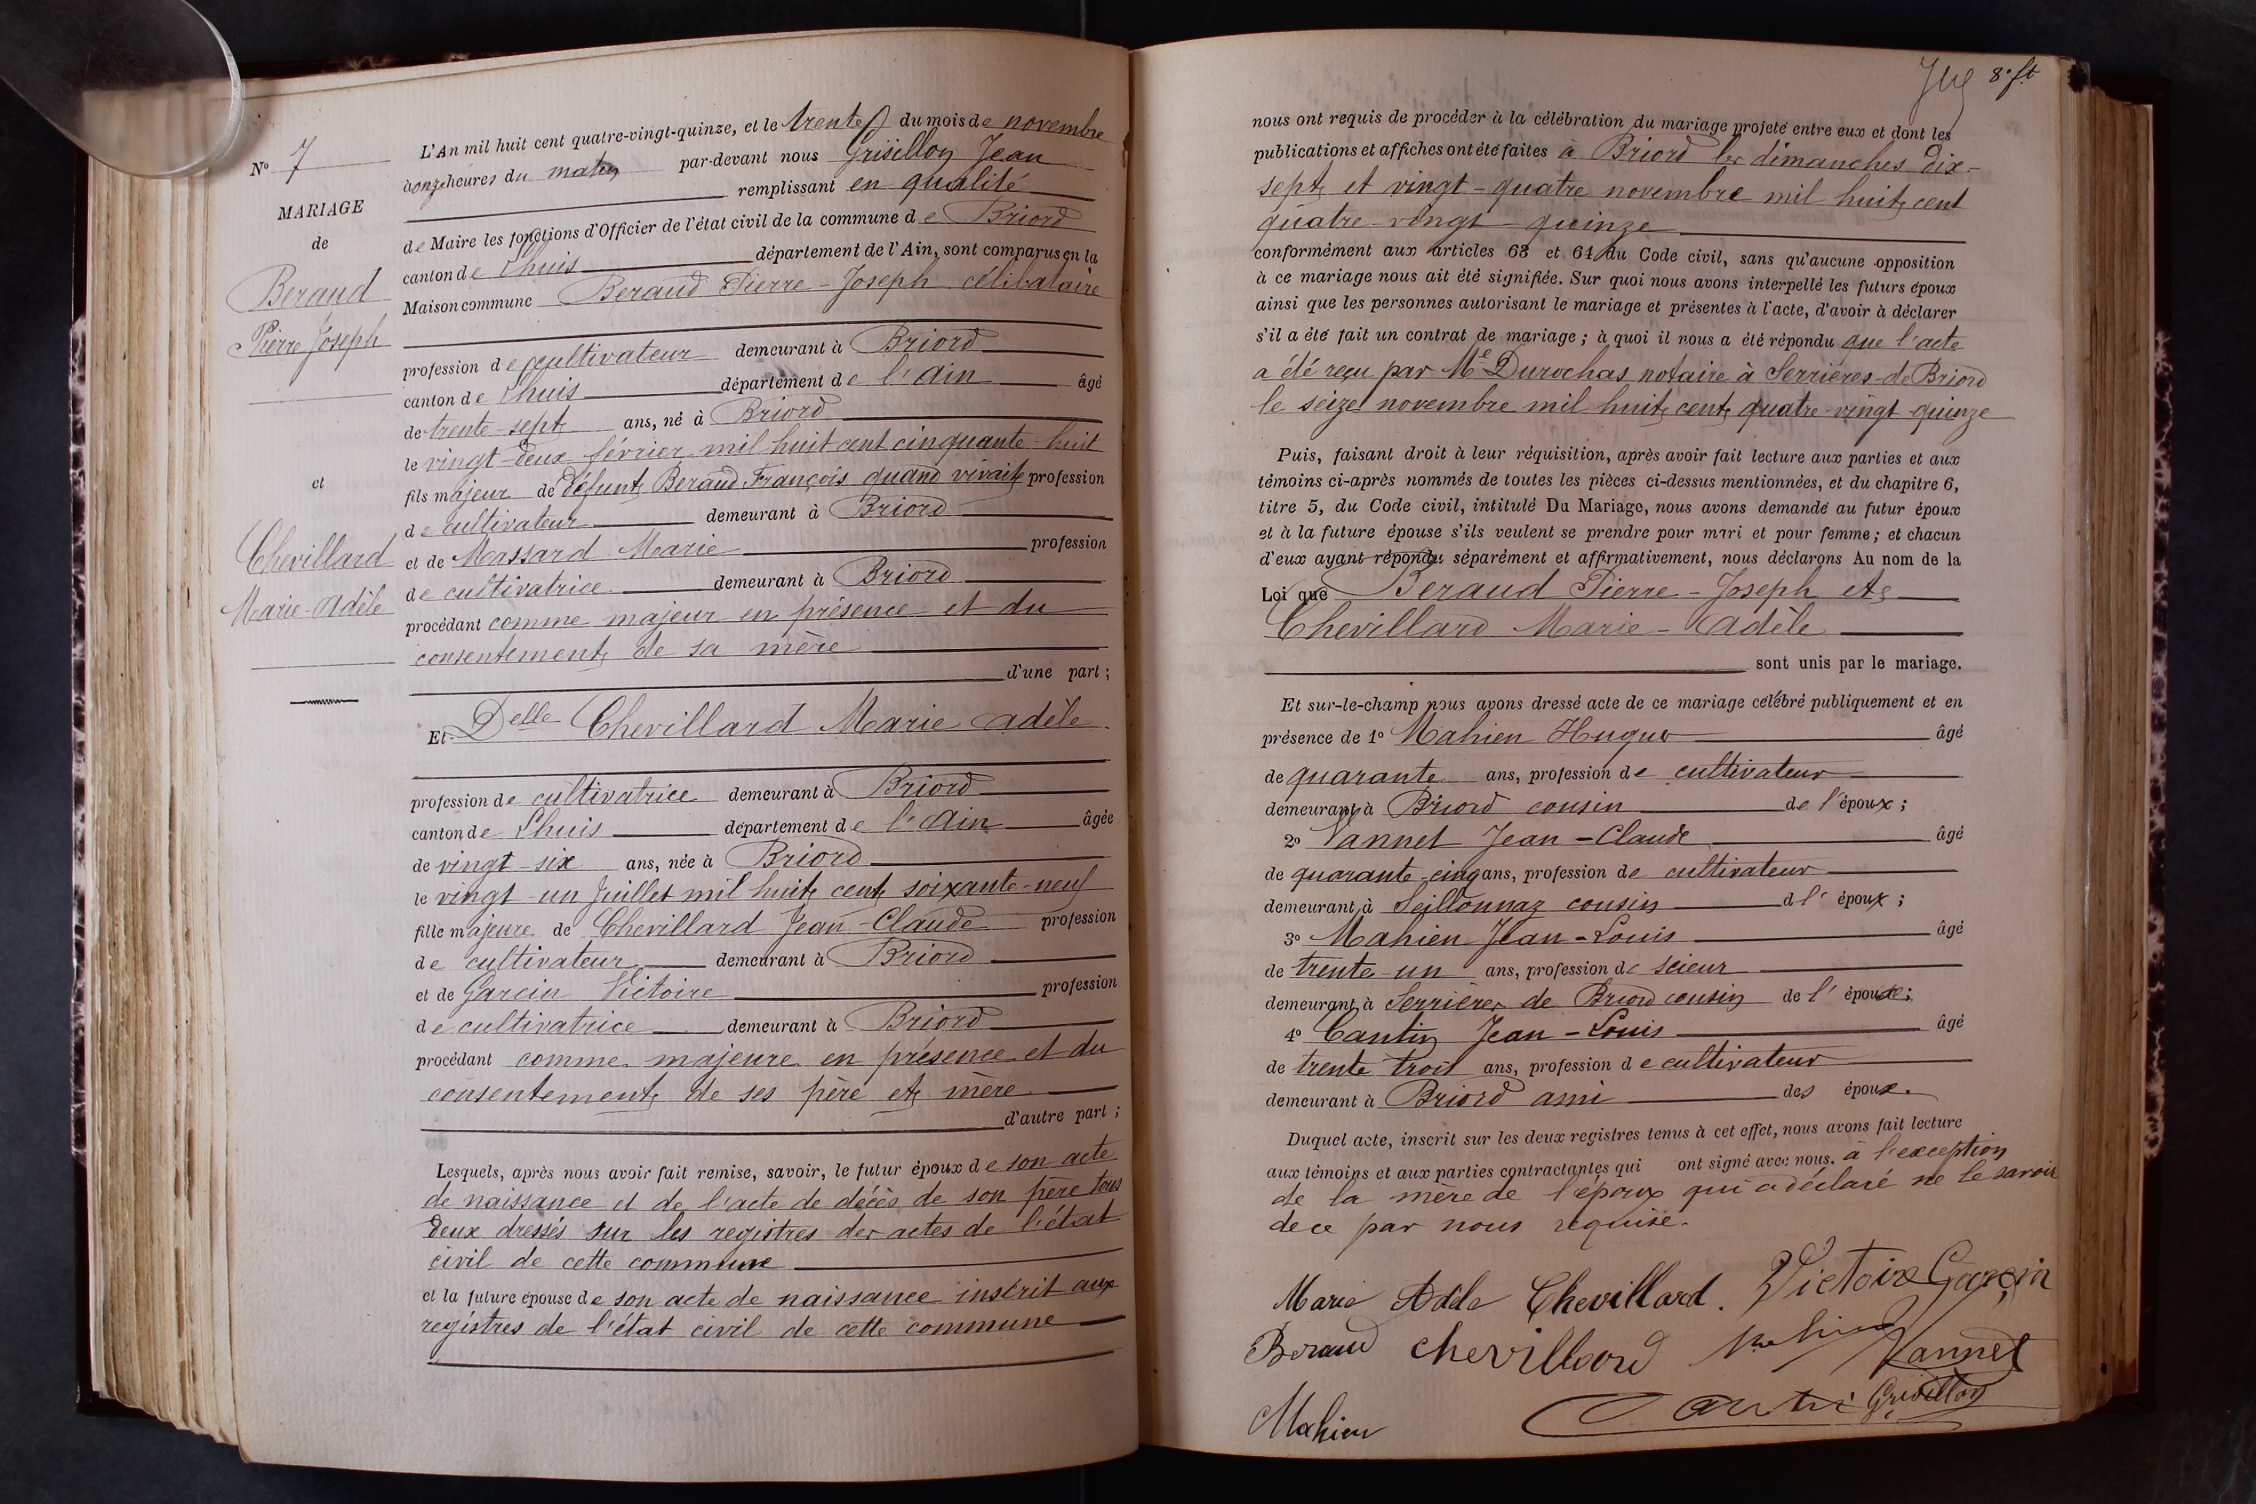 Nº 7
MARIAGE
de
Beraud
Pierre Joseph
et
Chevillard
Marie-Adèle
L'An mil huit cent quatre-vingt-quinze, et le trente du mois de novembre
à onze heures du matin par-devant nous Grisillon Jean
remplissant en qualité
de Maire les fonctions d'Officier de l'état civil de la commune de Briord
canton de Lhuis département de l'Ain, sont comparus en la
Maison commune Beraud Pierre-Joseph célibataire
profession de cultivateur demeurant à Briord
canton de Lhuis département de l'Ain âgé
de trente-sept ans, né à Briord
le vingt-deux février mil huit cent cinquante-huit
fils majeur de défunt Beraud François quand vivait profession
de cultivateur demeurant à Briord
et de Massard Marie profession
de cultivatrice demeurant à Briord
procédant comme majeur en présence et du
consentement de sa mère
d'une part ;
Et Delle Chevillard Marie Adèle
profession de cultivatrice demeurant à Briord
canton de Lhuis département de l'Ain âgée
de vingt-six ans, née à Briord
le vingt-un Juillet mil huit cent soixante-neuf
fille majeure de Chevillard Jean-Claude profession
de cultivateur demeurant à Briord
et de Garcin Victoire profession
de cultivatrice demeurant à Briord
procédant comme majeure en présence et du
consentement de ses père et mère
d'autre part ;
Lesquels, après nous avoir fait remise, savoir, le futur époux de son acte
de naissance et de l'acte de décès de son père tous
deux dressés sur les registres des actes de l'état
civil de cette commune
et la future épouse de son acte de naissance inscrit aux
régistres de l'état civil de cette commune
8e ft
nous ont requis de procéder à la célébration du mariage projeté entre eux et dont les
publications et affiches ont été faites à Briord les dimanches dix-
sept et vingt-quatre novembre mil huit cent
quatre-vingt-quinze
conformément aux articles 63 et 64 du Code civil, sans qu'aucune opposition
à ce mariage nous ait été signifiée. Sur quoi nous avons interpellé les futurs époux
ainsi que les personnes autorisant le mariage et présentes à l'acte, d'avoir à déclarer
s'il a été fait un contrat de mariage ; à quoi il nous a été répondu que l'acte
a été reçu par Me Durochas notaire à Serrières-de-Briord
le seize novembre mil huit cent quatre-vingt-quinze
Puis, faisant droit à leur réquisition, après avoir fait lecture aux parties et aux
témoins ci-après nommés de toutes les pièces ci-dessus mentionnées, et du chapitre 6,
titre 5, du Code civil, intitulé Du Mariage, nous avons demandé au futur époux
et à la future épouse s'ils veulent se prendre pour mari et pour femme ; et chacun
d'eux ayant répondu séparément et affirmativement, nous déclarons Au nom de la
Loi que Beraud Pierre-Joseph et
Chevillard Marie-Adèle
sont unis par le mariage.
Et sur-le-champ nous avons dressé acte de ce mariage célébré publiquement et en
présence de 1º Mahien Hugue âgé
de quarante ans, profession de cultivateur
demeurant à Briord cousin de l'époux ;
2º Vannet Jean-Claude âgé
de quarante-cinq ans, profession de cultivateur
demeurant à Seillonnaz cousin d l' époux ;
3º Mahien Jean-Louis âgé
de trente-un ans, profession de scieur
demeurant à Serrières de Briord cousin de l' épouse ;
4º Cantin Jean-Louis âgé
de trente trois ans, profession de cultivateur
demeurant à Briord ami des époux.
Duquel acte, inscrit sur les deux registres tenus à cet effet, nous avons fait lecture
aux témoins et aux parties contractantes qui ont signé avec nous. à l'exception
de la mère de l'époux qui a déclaré ne le savoir
de ce par nous requise.
Marie Adèle Chevillard. Victoire Garcin
Beraud Chevillard Mahien Vannet
Mahien Cantin Grisillon